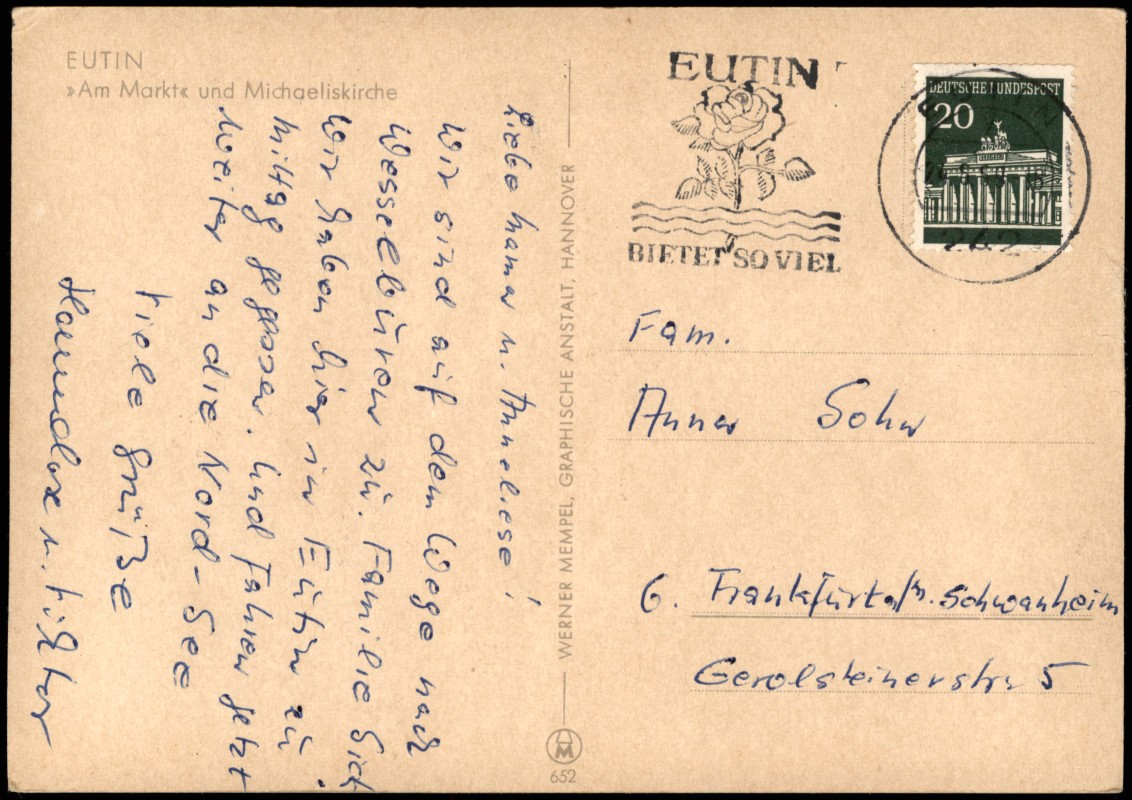 EUTIN
»Am Markt« und Michaeliskirche
Liebe Mama u. Anneliese!
Wir sind auf dem Wege nach
Wesselburen zu. Familie Sich
Wir haben hier in Eutin zu
Mittag gegessen. Und fahren jetzt
weiter an die Nord-See
Viele Grüße
Hannelore u.
WERNER MEMPEL, GRAPHISCHE ANSTALT, HANNOVER
652
EUTIN
BIETET SO VIEL
DEUTSCHE BUNDESPOST
20
242
Fam.
Anna Sohn
6. Frankfurt a/M. Schwanheim
Gerolsteinerstr 5